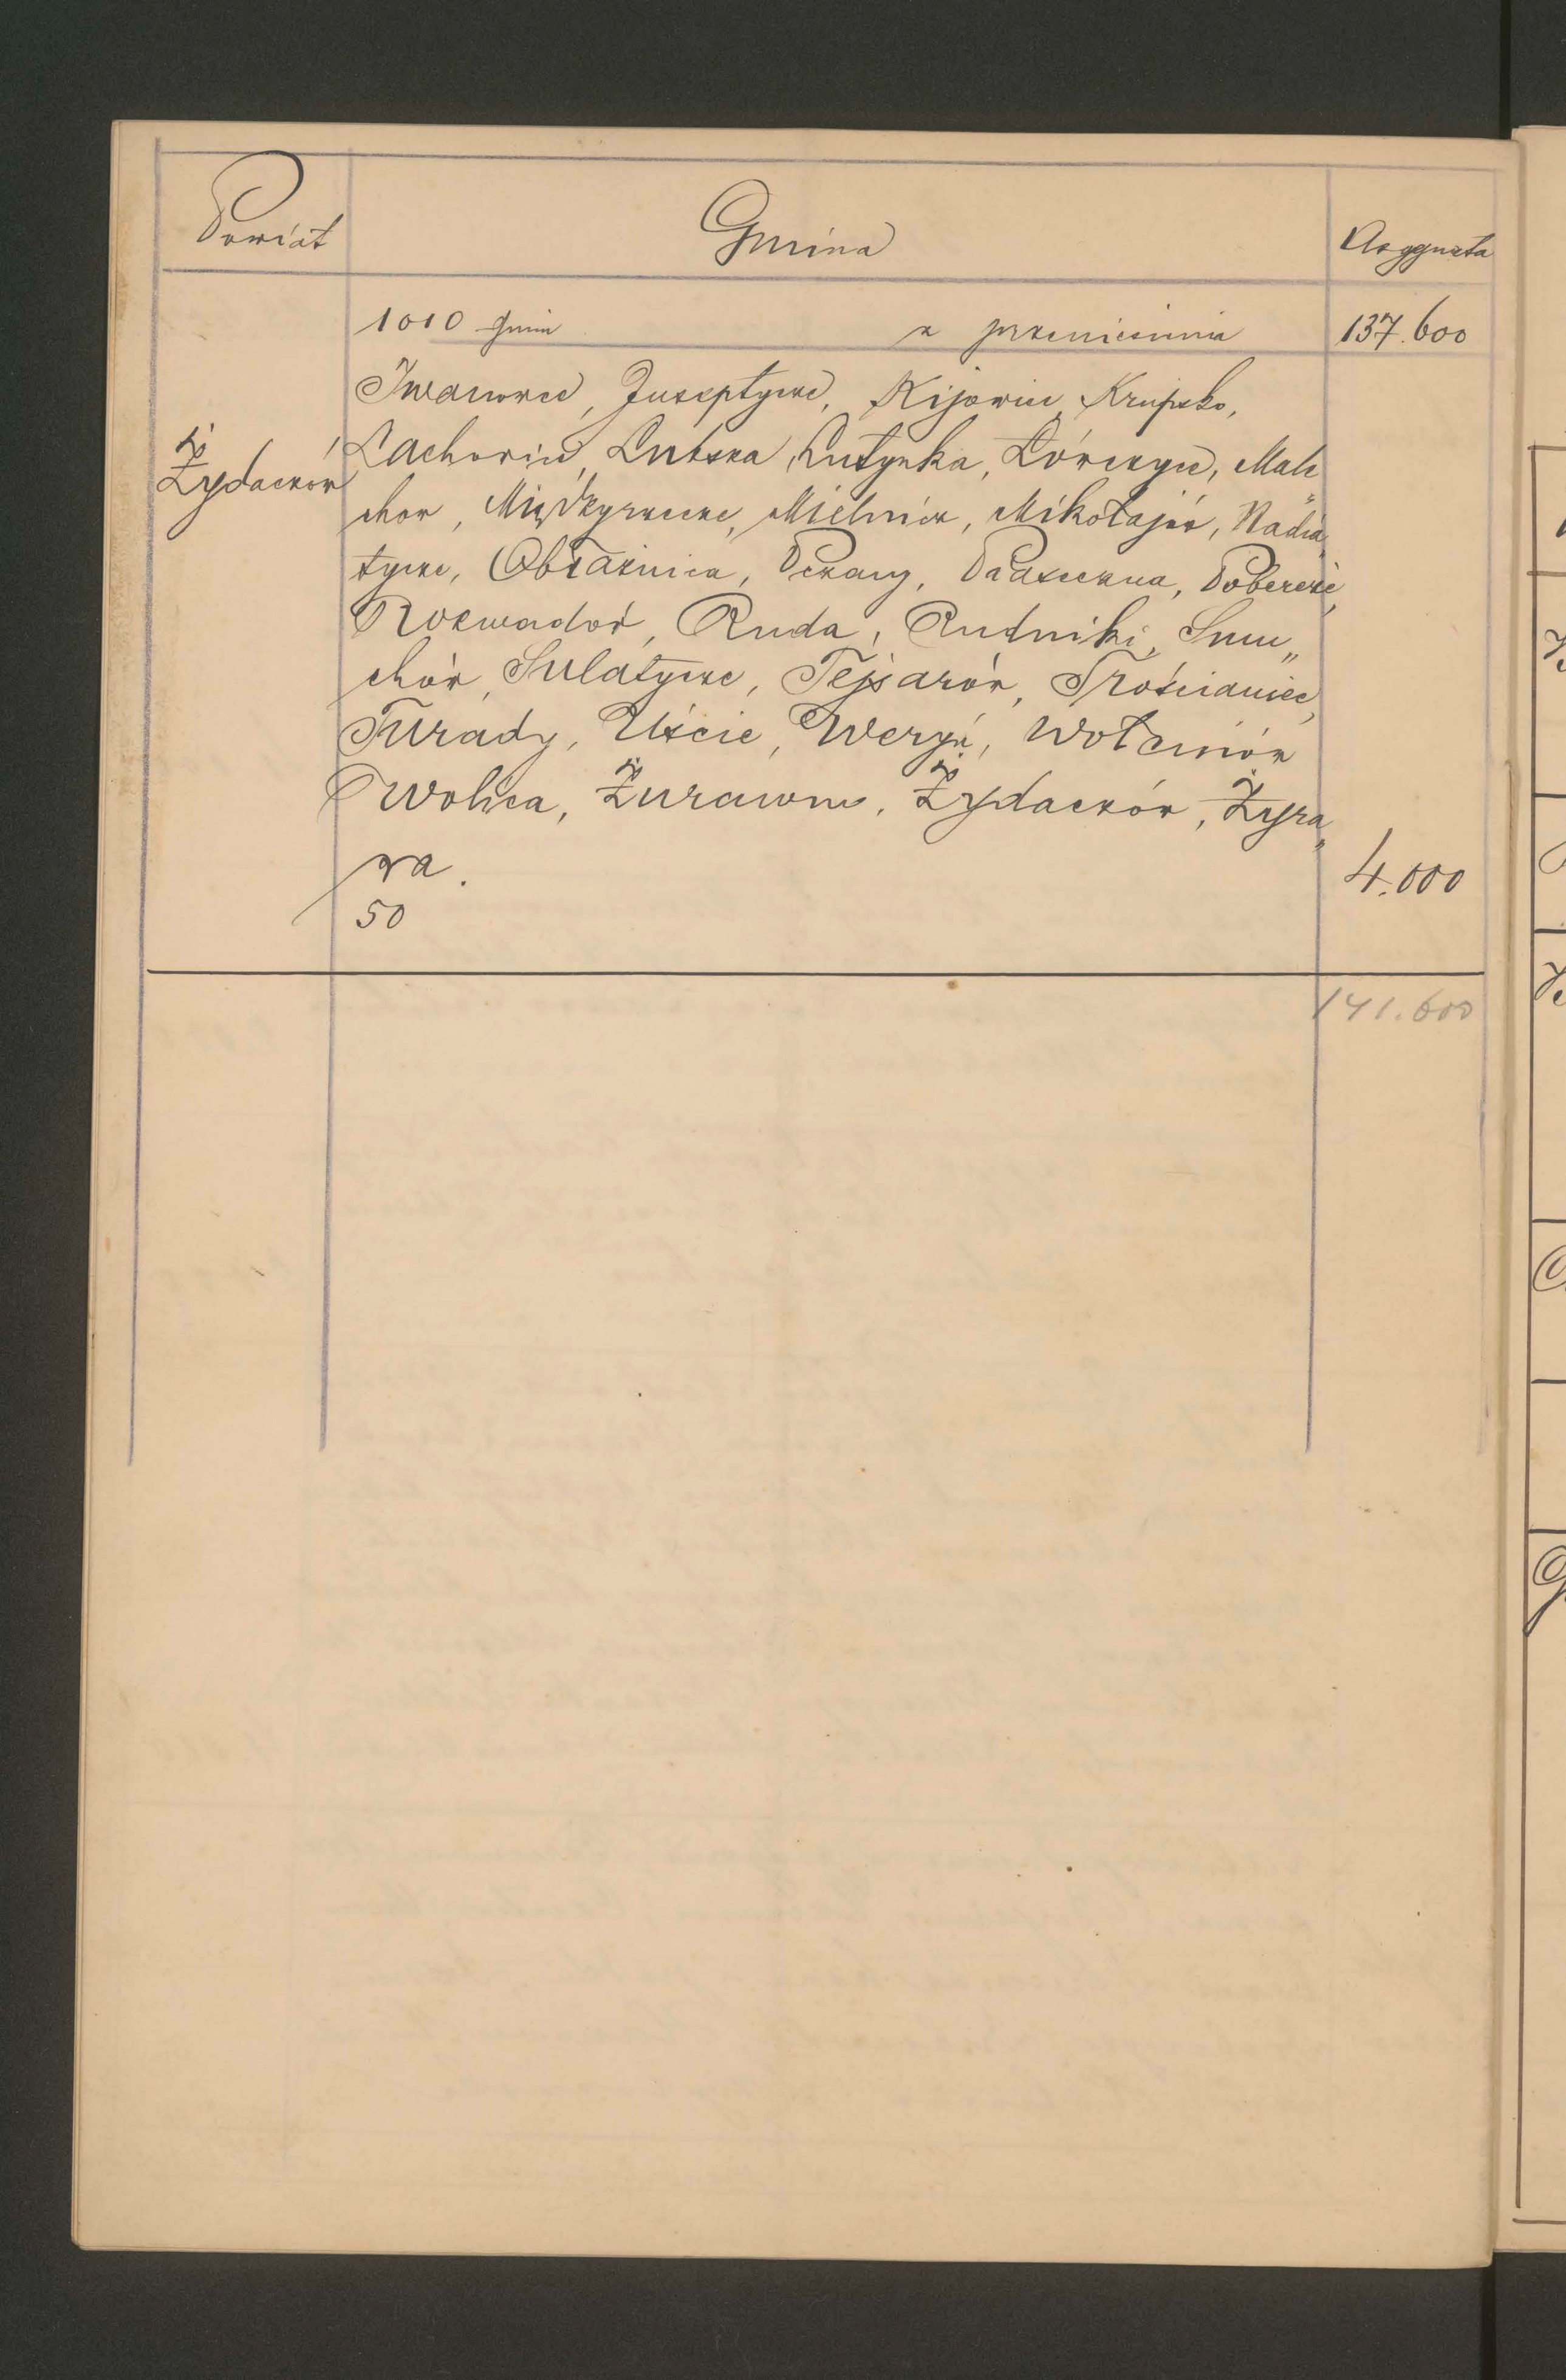 Powiat
Gmina
Asygnata
1010 gmin z przeniesienia 137.600
Żydaczów
Iwanowce, Juseptycze, Kijowiec, Krupsko,
Lachowice, Lubsza, Lutynka, Łówczyce, Male
chow, Międzyrzecze, Mielnicz, Mikołajów, Nadia„
tycze, Obłaźnica, Pczany, Piaseczna, Pobereże,
Rozwadów, Ruda, Rudniki, Smu„
chów, Sulatycze, Tejsarów, Trościaniec,
Turady, Uście, Weryń, Wołcniów
Wolica, Żurawno, Żydaczów, Żyra„
wa.
4.000
50
141.600